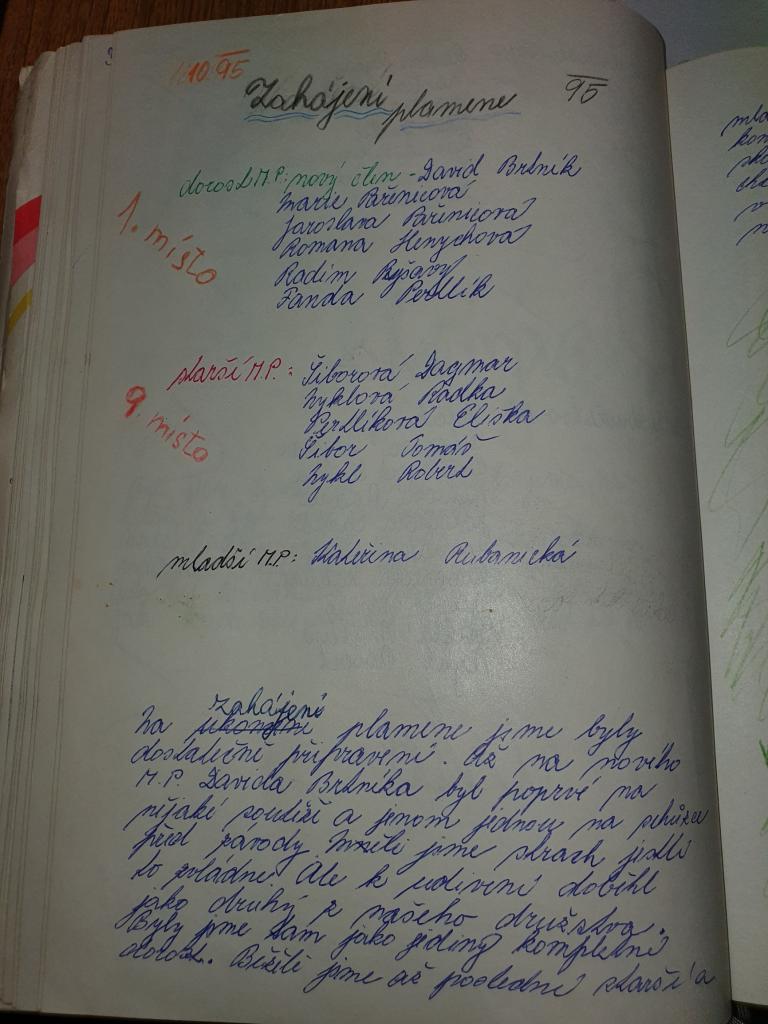 1.10.95
Zahájení plamene 95
dorost M.P.: nový člen - David Brtník
Marie Bařinicová
Jaroslava Bařinicová
Romana Henychová
1. místo
Radim Ryšavý
Fanda Perdlík
starší M.P.: Šiborová Dagmar
Zyklová Radka
9. místo
Perdlíková Eliška
Šibor Tomáš
Zykl Robert
mladší M.P.: Kateřina Rubanická
zahájení
Na ukončení plamene jsme byly
dostatečně připravení. Až na nového
M.P. Davida Brtníka byl poprvé na
nějaké soutěži a jenom jednou na schůzce
před závody. Měli jsme strach jestli
to zvládne. Ale k udivení doběhl
jako druhý z našeho družstva.
Byly jsme tam jako jediný kompletní
dorost. Běželi jsme až poslední starší a